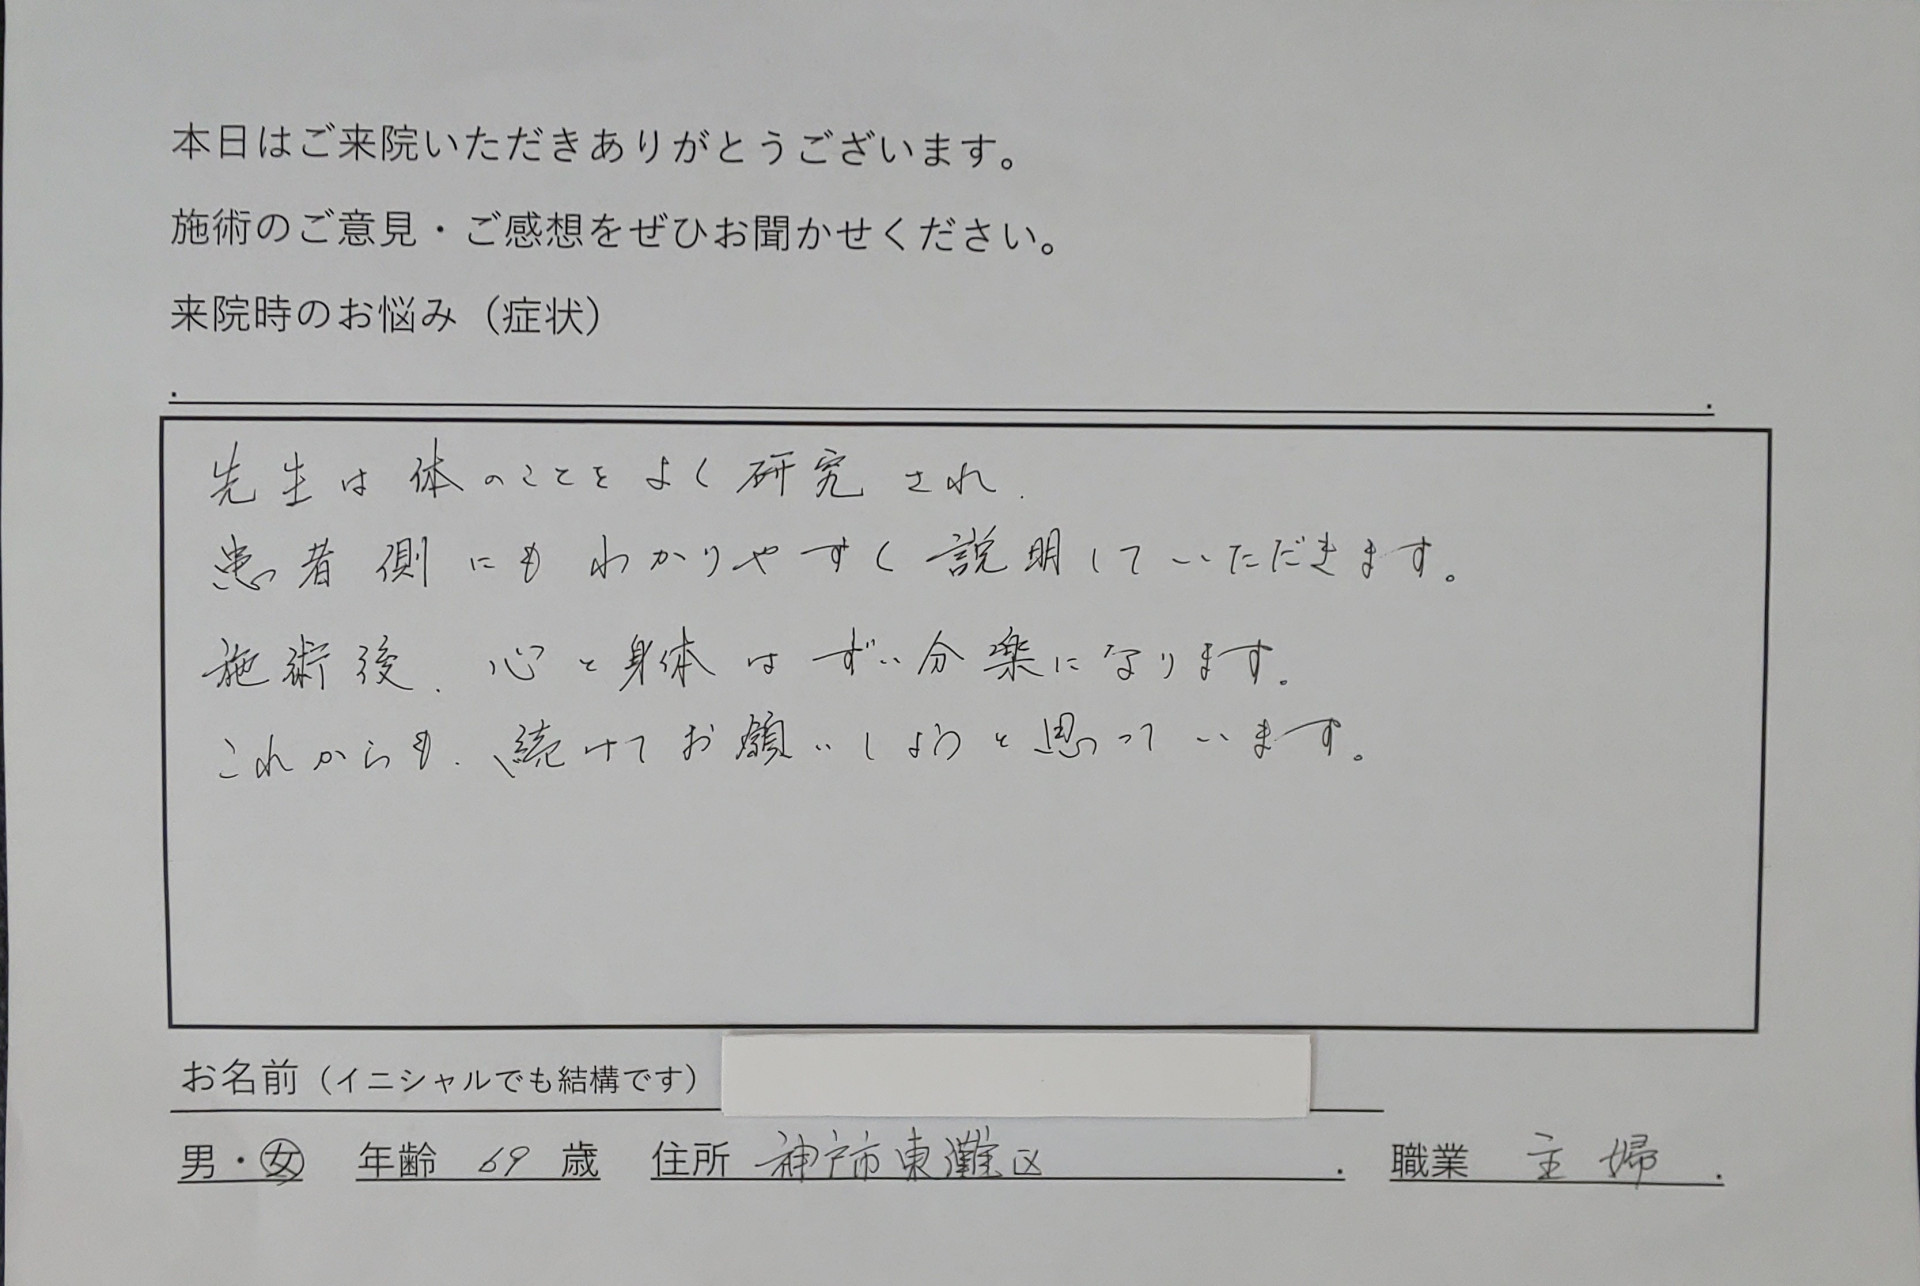 本日はご来院いただきありがとうございます。
施術のご意見・ご感想をぜひお聞かせください。
来院時のお悩み（症状）
先生は体のことをよく研究され.
患者側にもわかりやすく説明していただきます。
施術後、心と身体はずい分楽になります。
これからも、続けてお願いしようと思っています。
お名前（イニシャルでも結構です）
男・女 年齢 69 歳 住所 神戸市東灘区 . 職業 主婦 .